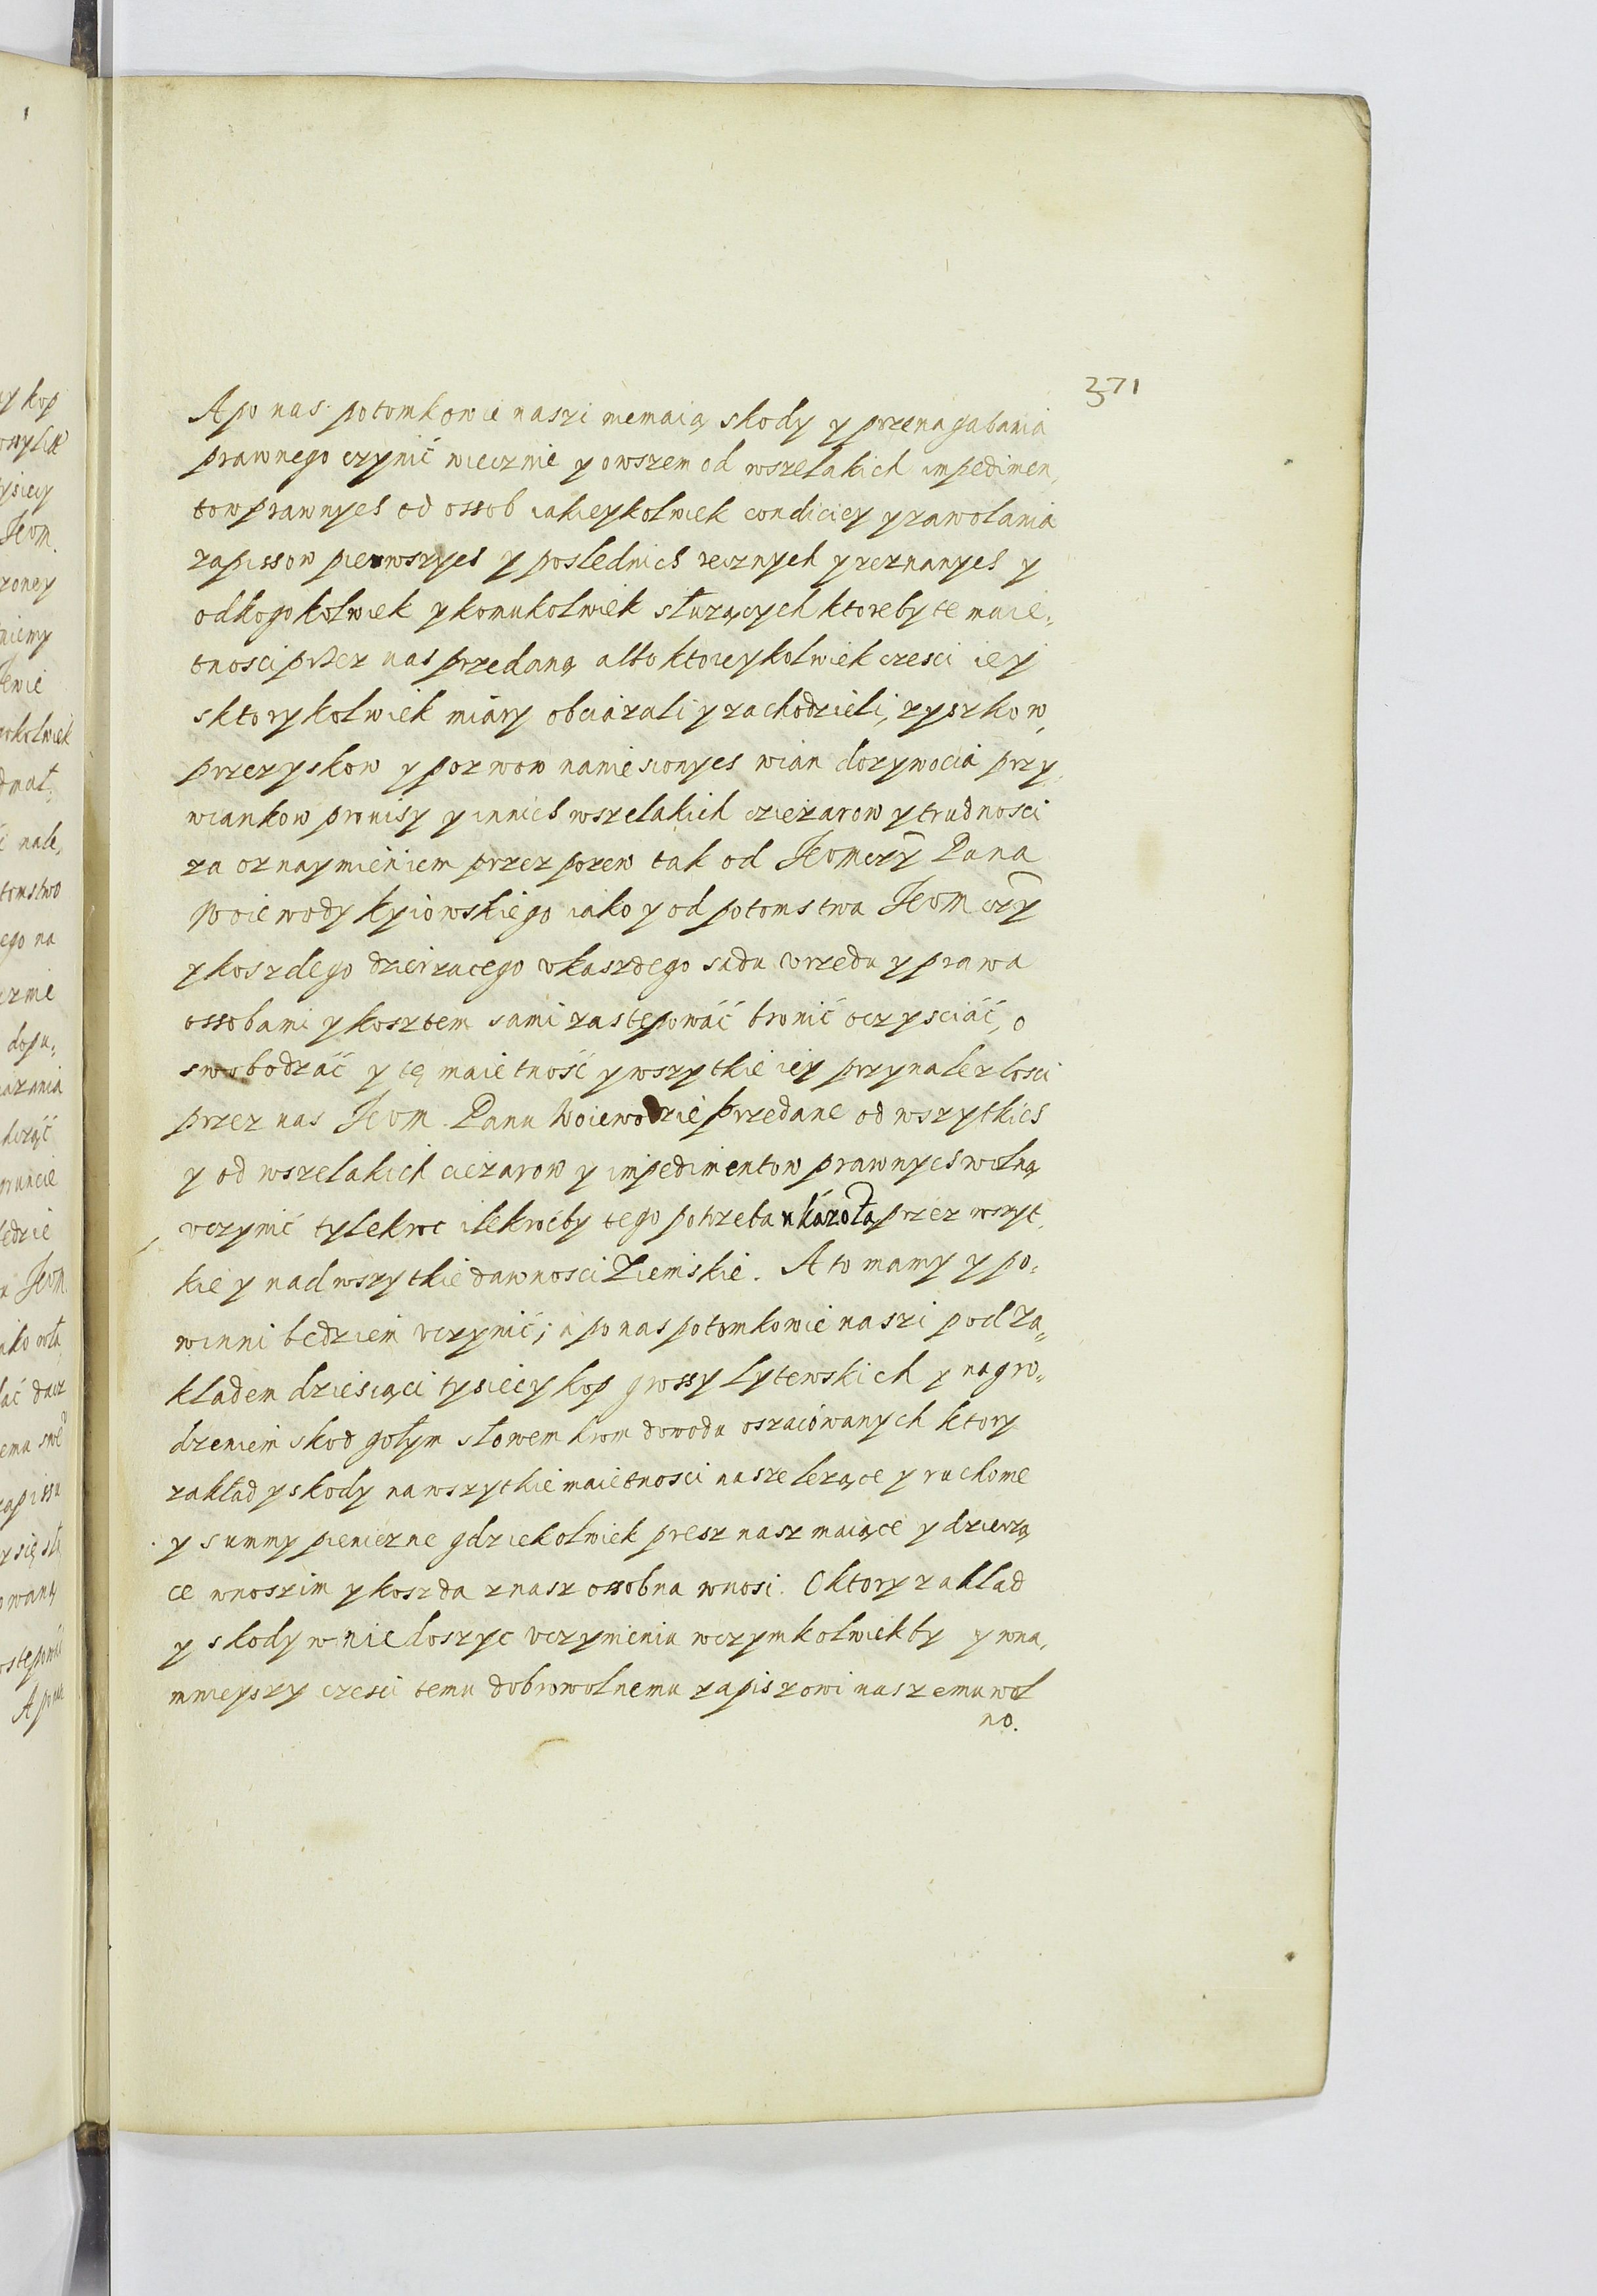 371
A po nas potomkowie naszi niemaią skody y przenagabania
prawnego czynić wiecznie y owszem od wszelakich impedimen,
tow prawnych od ossob iakieykolwiek condiciey y zawolania
zapissow pierwszych y poslednich recznych y zeznanych y
odkogokolwiek y komukolwiek służących ktoreby te maię,
tnosci przez nas przedaną albo ktoreykolwiek czesci iey
sktorykolwiek miáry obciázali y zachodzieli, zyszkow,
przezyskow y pozwow naniesionych wian dozywocia przy,
wiankow prowisy y innich wszelakich czieżarow y trudnosci
za oznaymieniem przez pozew tak od Jeomczy Pana
Woiewody Kyiowskiego iako y od potomstwa Jeomczy
y koszdego dzierzacego v kaszdego sadu vrzedu y prawa
ossobami y kosztem sami zastepowáć bronić oczysciáć, o
swobodzáć y tę maietność y wszytkie iey przynalezlosci
przez nas Jeom. Panu Woiewodzie przedane od wszytkich
y od wszelakich ciezarow y impedimentow prawnych wolną
vczynić tylekroc ilekroćby tego potrzeba ukázoła przez wszyt,
kie y nad wszytkie dawnosci Ziemskie. A to mamy y po,
winni bedziem vczynić; á po nas potomkowie naszi pod Za,
kladem dziesiąci tysiecy kop grossy Lytewskich y nagro,
dzeniem skod gołym słowem krom dowodu oszaciowanych ktory
zakład y skody na wszytkie maietnosci nasze lezące y ruchome
y summy pienieżne gdziekolwiek presz nasz maiące y dzierzą
ce wnoszim y koszda z nasz ossobna wnosi. O ktory zaklad
y skody w nie doszyc vczynieniu w czymkolwiekby y wna,
mnieyszy czesci temu dobrowolnemu zapiszowi naszemu wol
no.